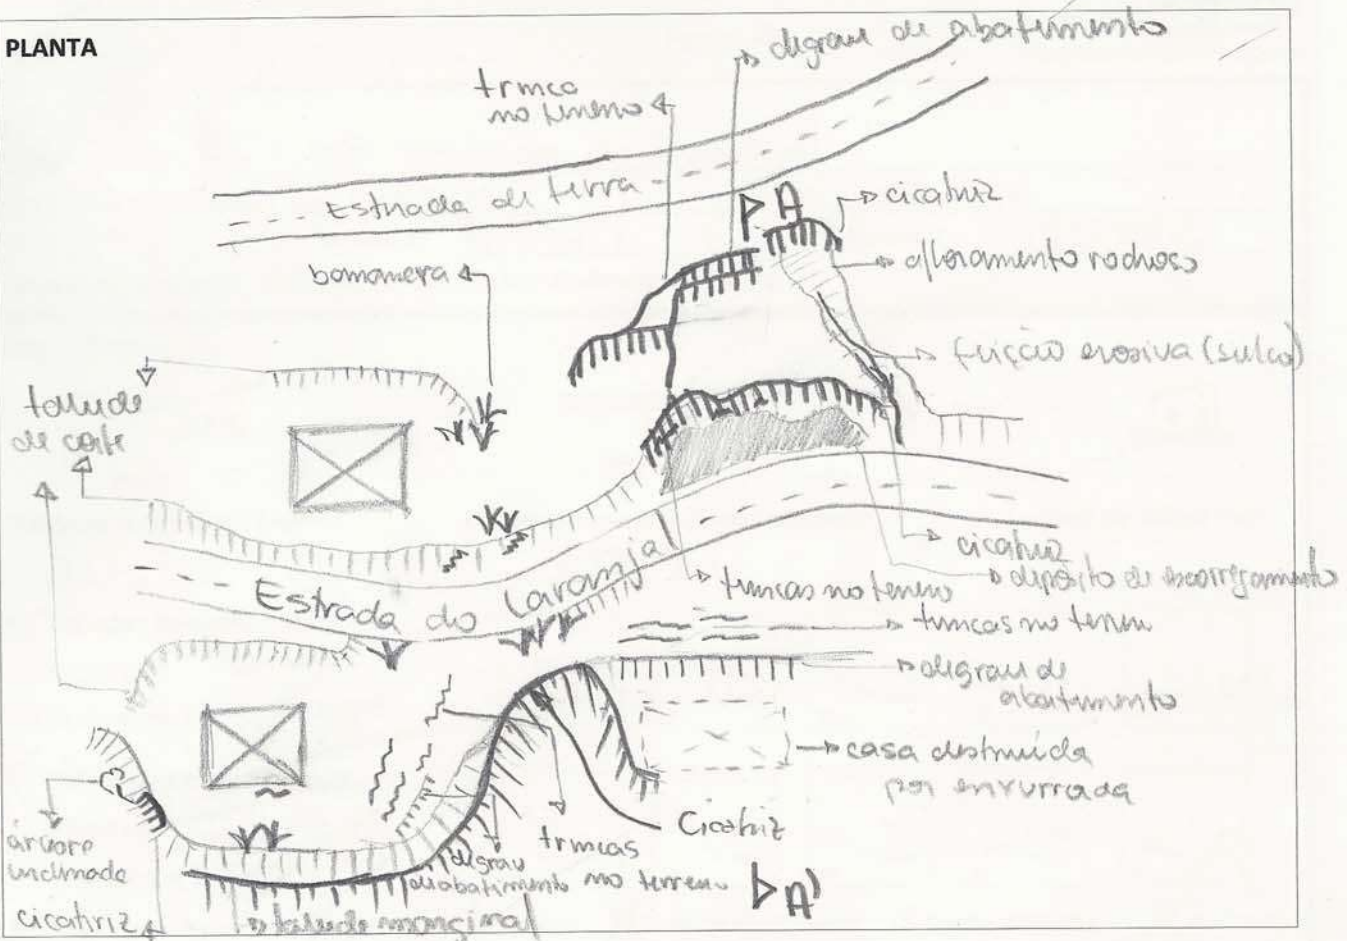 PLANTA
degrau de abatimento
trinca
no terreno
Estrada de terra
A
cicatriz
bananeira
afloramento rochoso
feição erosiva (sulco)
talude
de corte
cicatriz
depósito de escorregamento
Estrada do Laranjal
trincas no terreno
trincas no terreno
degrau de
abatimento
casa destruída
por enxurrada
Cicatriz
árvore
inclinada
degrau
de abatimento
trincas
no terreno
A'
cicatriz
talude marginal